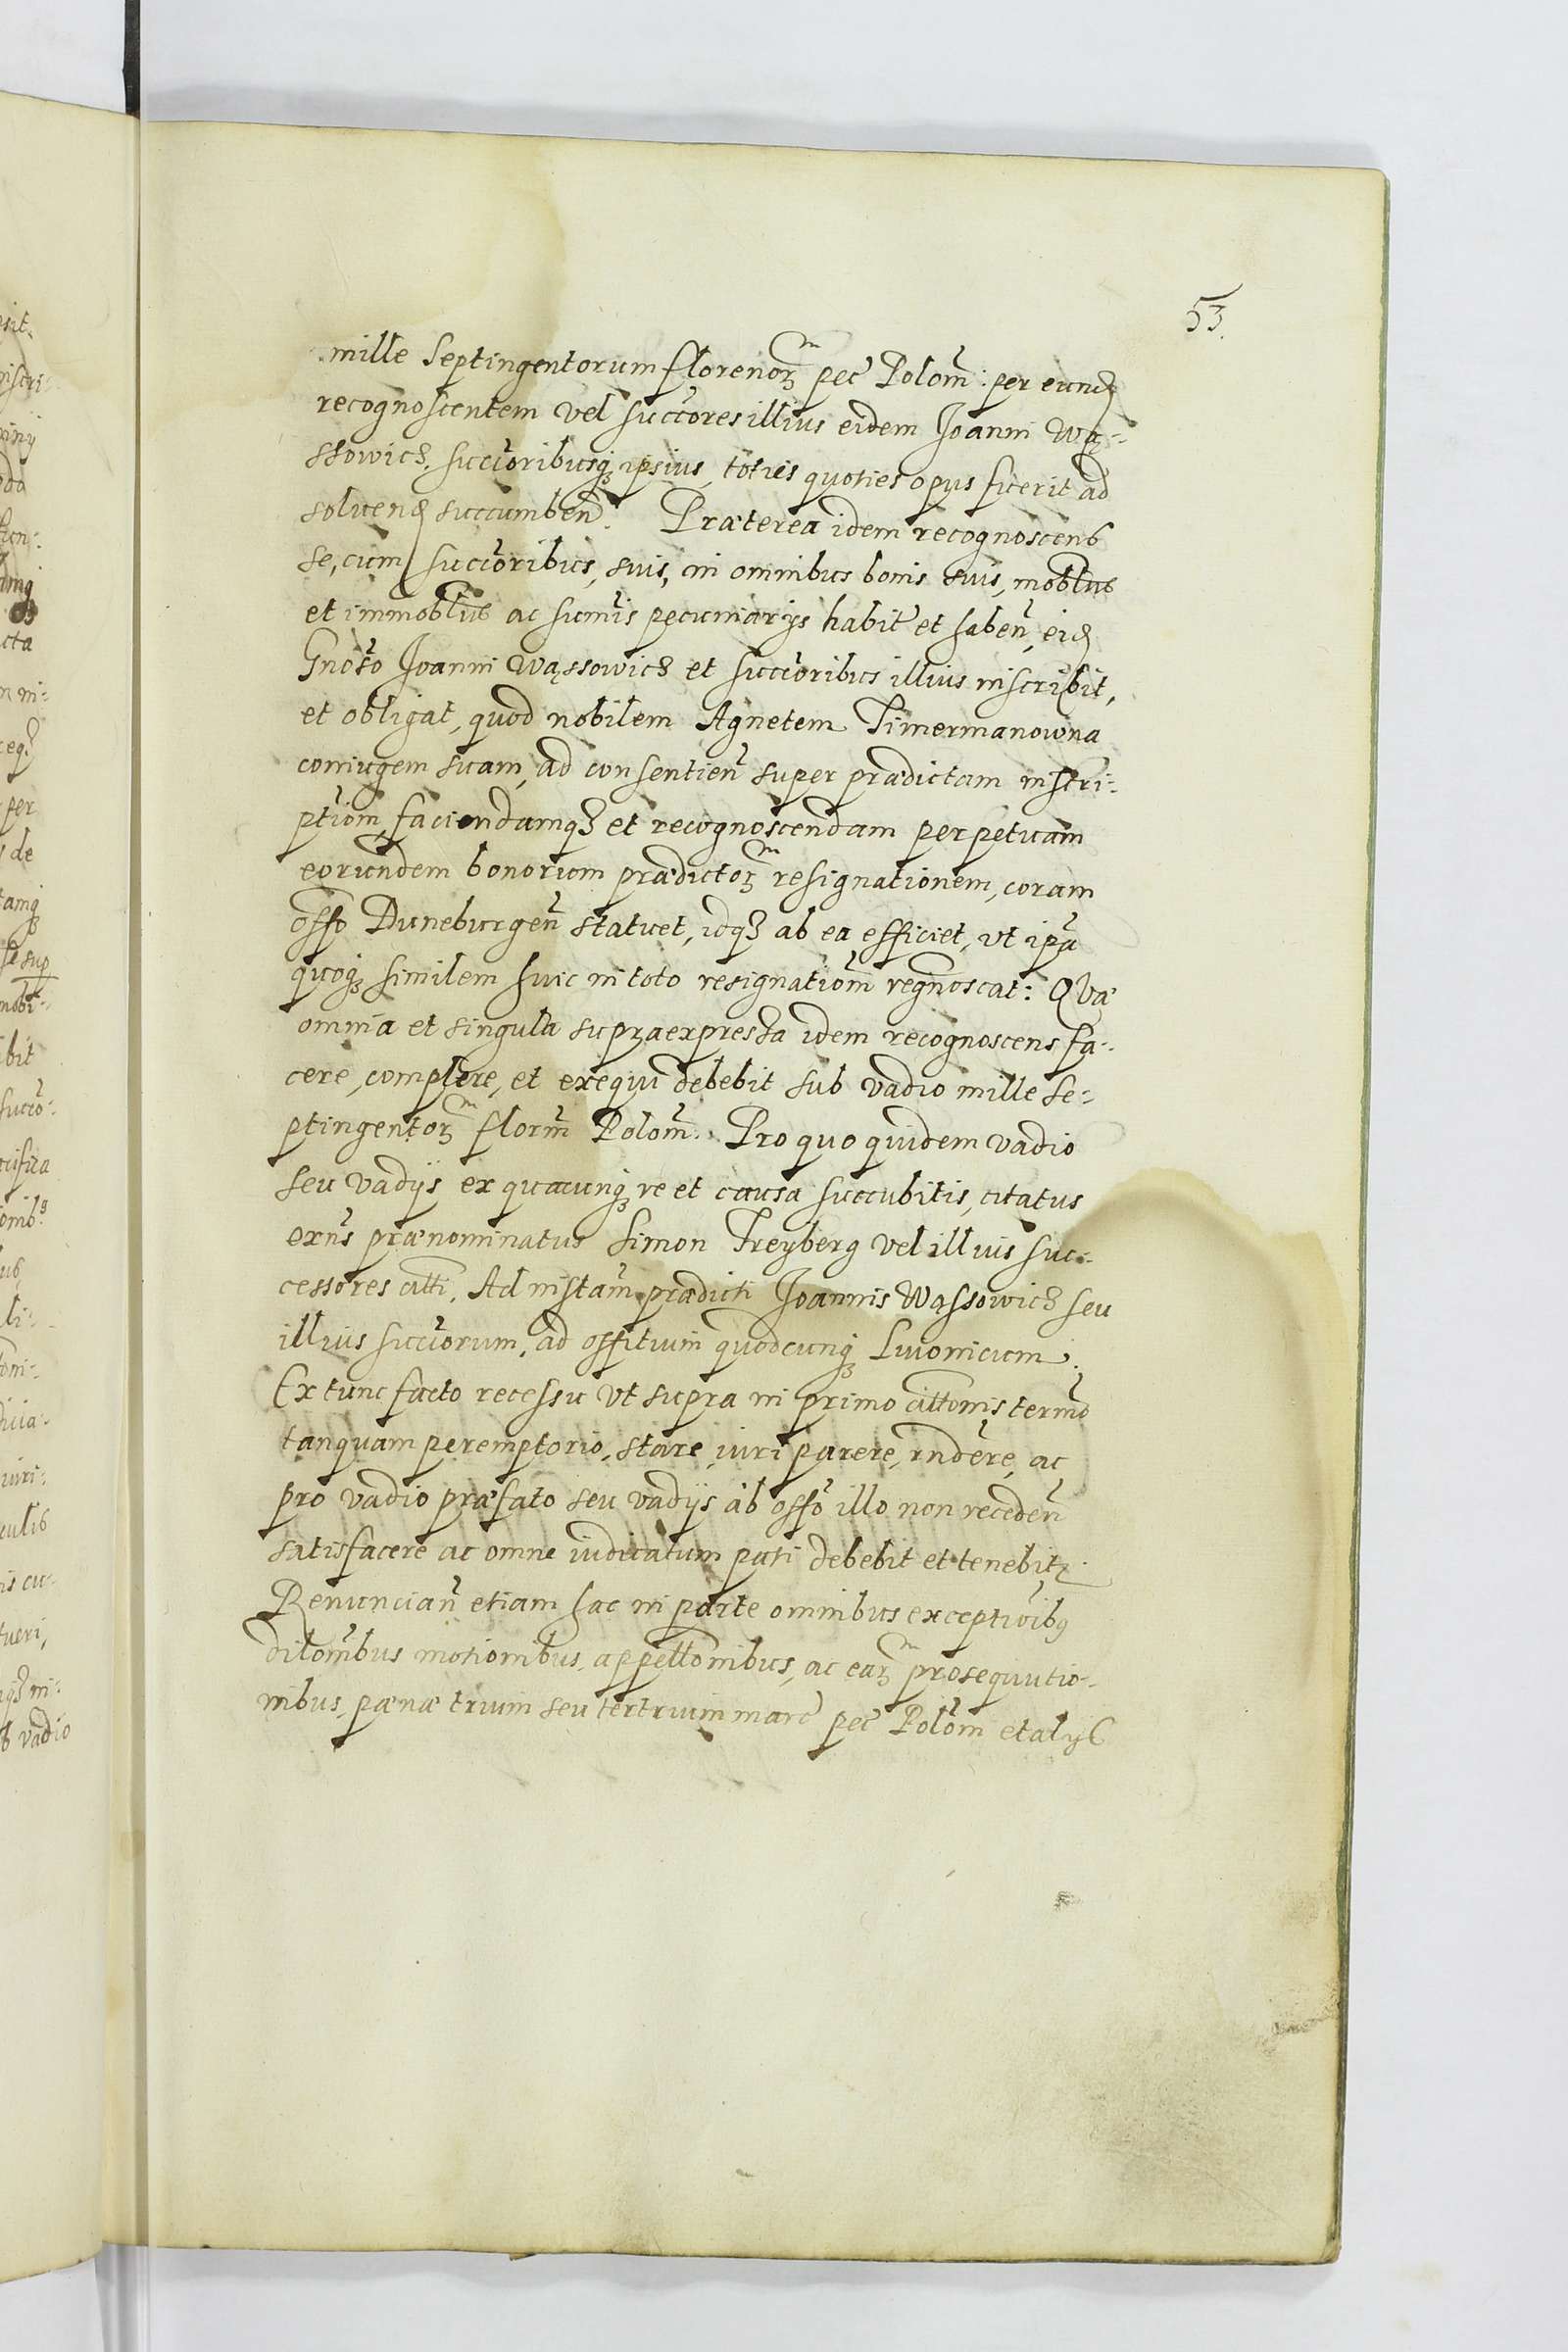 53.
mille Septingentorum florenorꝫ pec̃ Polom̃: per eund
recognoscentem vel succ̃ores illius eidem Joanni Wą-
ssowicz, succ̃oribusqꝫ ipsius, toties quoties opus fuerit ad
solvend succumben̄. Præterea idem recognoscens
se, cum succ̃oribus, suis, in omnibus bonis suis, mob̃lius
et immob̃lius ac sum̃is pecuniarys habit̃ et haben̄, eid
Gnõso Joanni Wąssowicz et succ̃oribus illius inscribit,
et obligat, quod nobilem Agnetem Timermanowna
coniugem suam, ad consentien̄ super prædictam inscri-
ptiom̃, faciendamqꝫ et recognoscendam perpetuam
eorundem bonorum prædictorꝫ resignationem, coram
off̃o Duneburgen̄ statuet, idqꝫ ab ea efficiet, ut ip̃a
quoqꝫ similem huic in toto resignatiom̃ regnõscat: Quæ
omnia et singula supraexpressa idem recognoscens fa-
cere, complere, et exequi debebit sub vadio mille se-
ptingentorꝫ florm̃ Polom̃. Pro quo quidem vadio
seu vadijs ex quacunqꝫ re et causa succubitis, citatus
exñs prænominatus Simon Freyberg vel illius suc-
cessores citti, Ad instam̃ prædicti Joannis Wąssowicz seu
illius succ̃orum, ad offitium quodcunqꝫ Livonicum.
Ex tunc facto recessu ut supra in primo citt̃onis term̃o
tanquam peremptorio, stare, iuri parere, rñdere, ac
pro vadio præfato seu vadijs ab off̃o illo non receden̄
satisfacere ac omne iudicatum pati debebit et tenebitꝛ.
Renuncian̄ etiam hac in parte omnibus exceptiõibꝰ
dilom̃bus motionibus, appellõnibus, ac earꝫ prosequutio-
nibus, pænæ trium seu ter trium marc̃ pec̃ Polom̃ et alijs